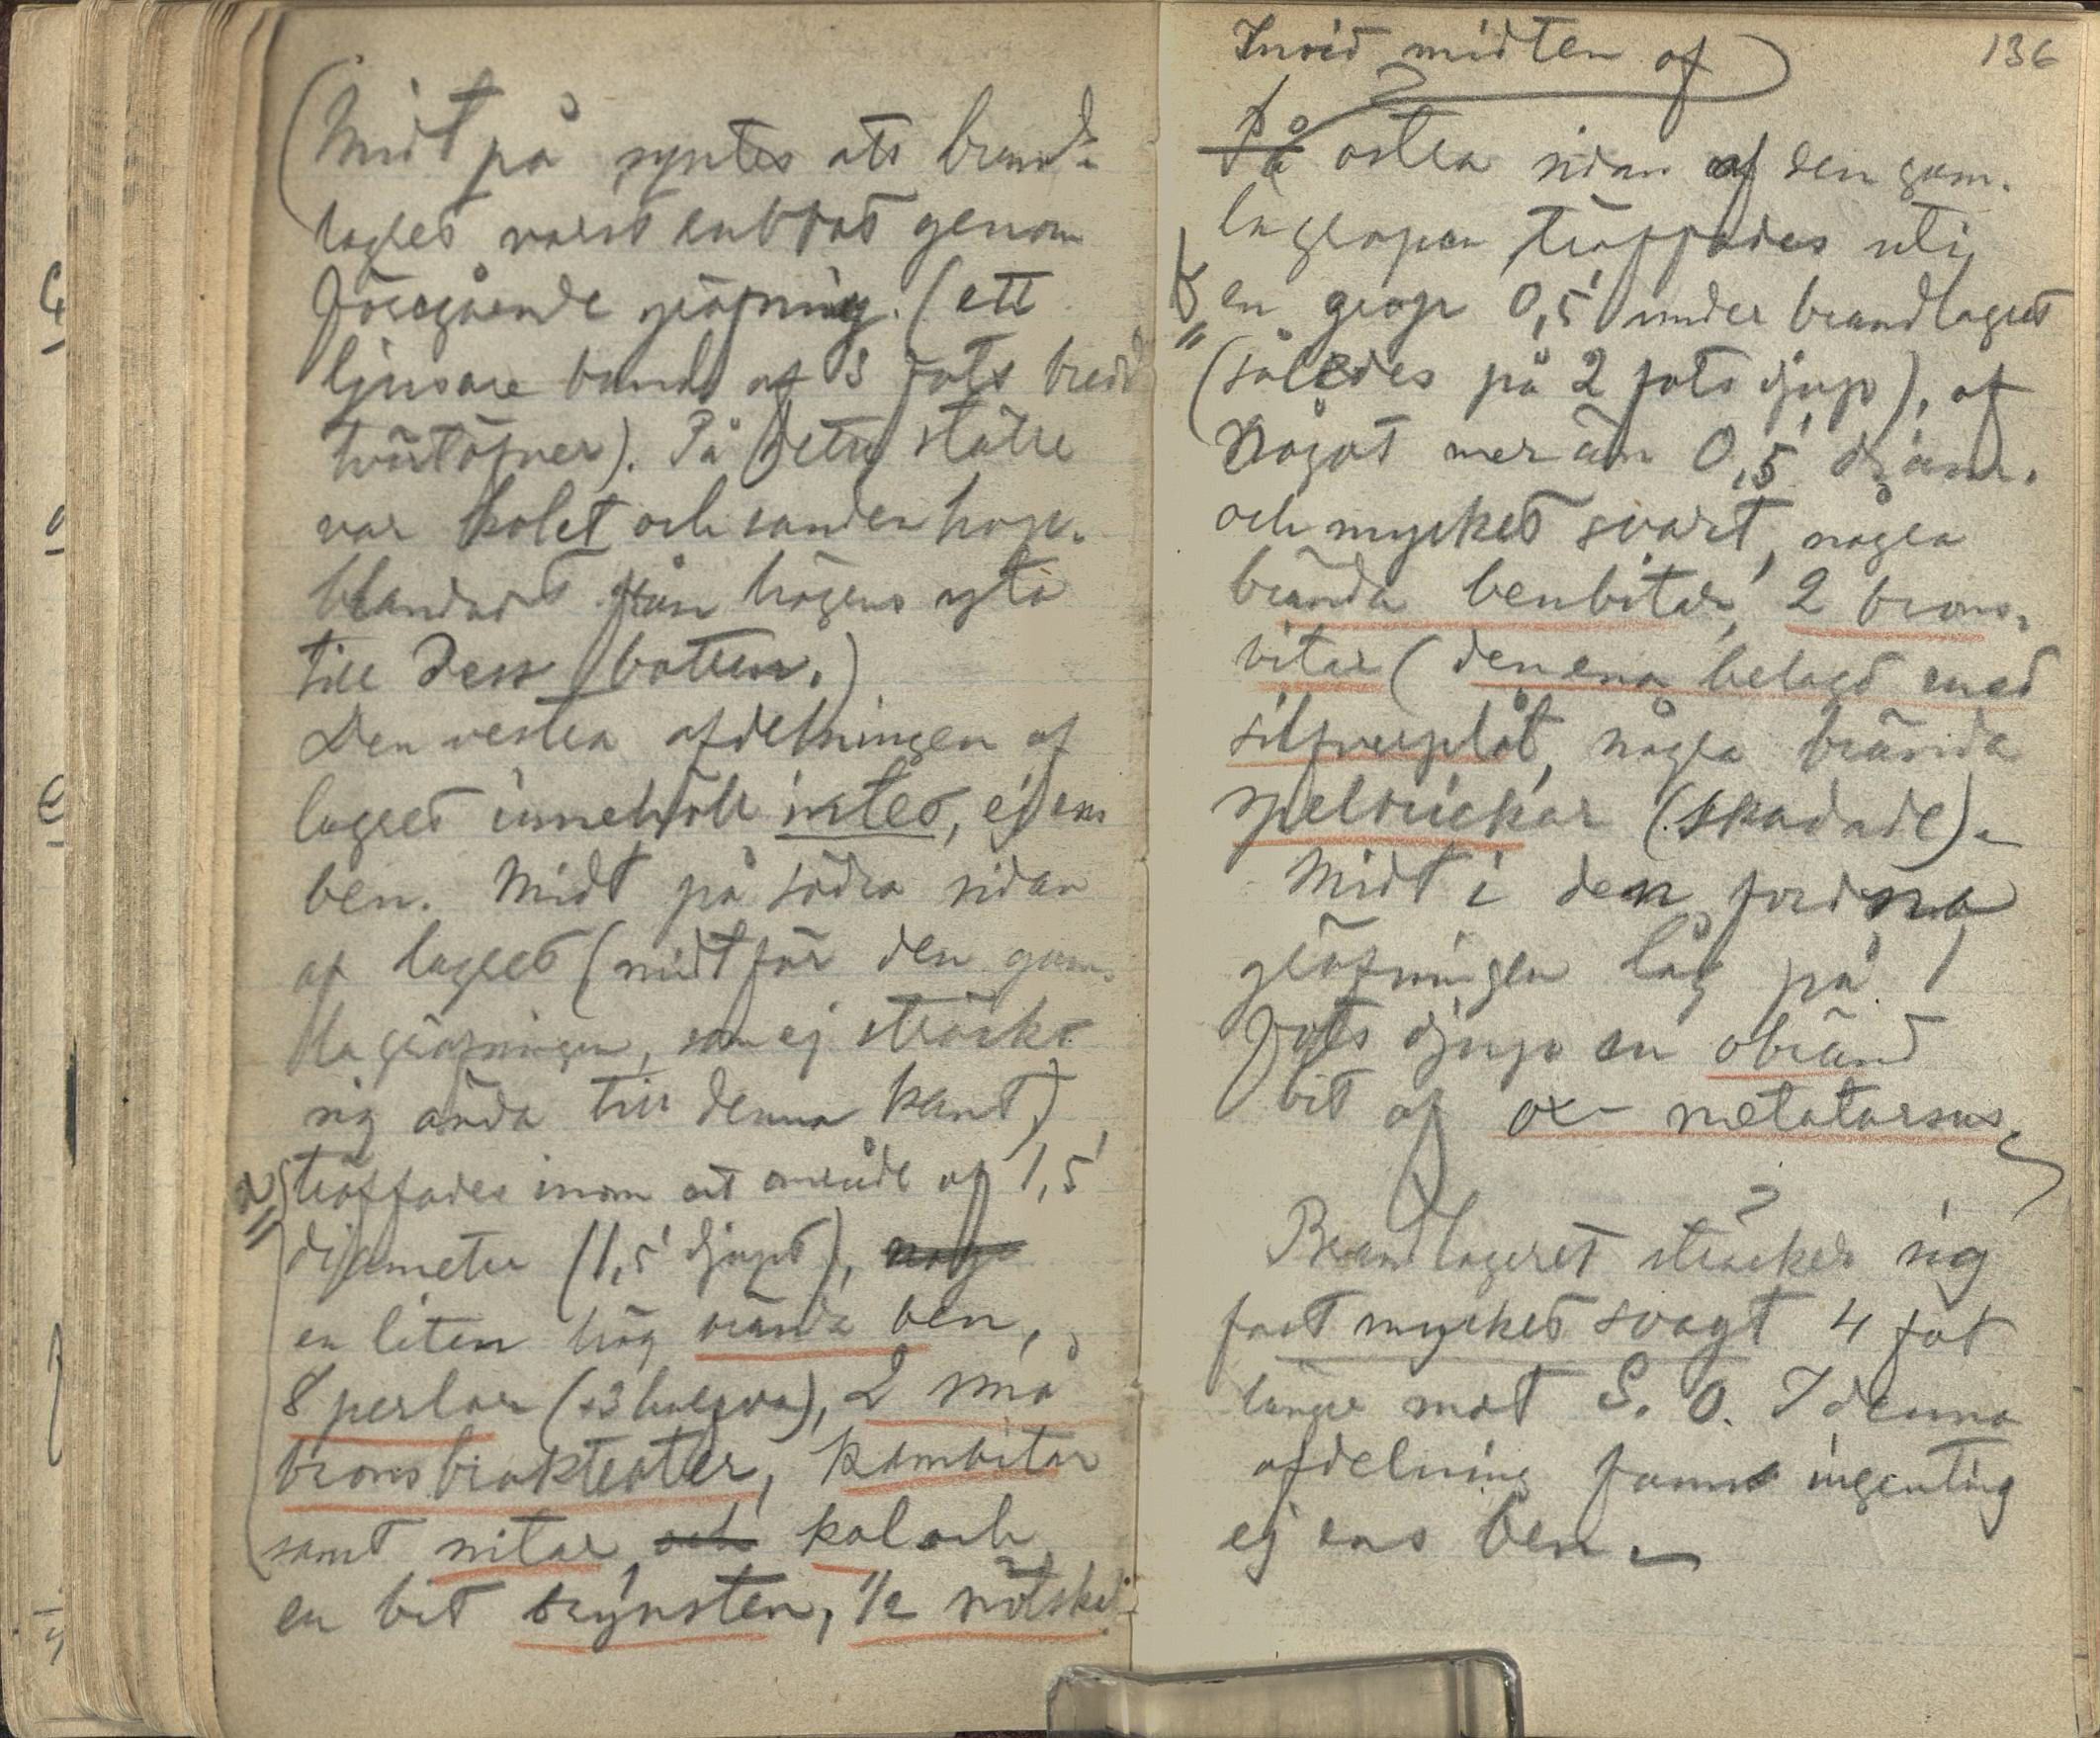 (Midt på syntes att brand-
lagret varit rubbat genom
föregående gräfning. (ett
ljusare band af 3 fots bredd
tvärtöfver). På detta ställe
var kolet och sanden hop-
blandadt från högens yta
till dess botten.)
Den vestra afdelningen af
lagret innehöll intet, ej ens
ben. Midt på södra sidan
af lagret (midt för den gam-
la gräfningen, som ej sträckt
sig ända till denna kant)
a träffades inom ett område af 1,5'
diameter (1,5' djupt), några
en liten hög brända ben,
8 perlor (+3 halfva), 2 små
bronsbrakteater, kambitar
samt nitar och kol och
en bit brynsten, 1/2 nötskal
136
Invid midten af
På östra sidan af den gam-
la gropen träffades uti
b en grop 0,5' under brandlagret
(således på 2 fots djup), af
något mer än 0,5' diam.
och mycket svart, några
brända benbitar, 2 brons-
bitar (den ena belagd med
silfverplåt, några brända
spelbrickor (skadade).
Midt i den fordna
gräfningen låg på 1
fots djup en obränd
bit af ox-metatarsus
Brandlagret sträcker sig
fast mycket svagt 4 fot
längre mot S. O. I denna
afdelning fanns ingenting
ej ens ben.